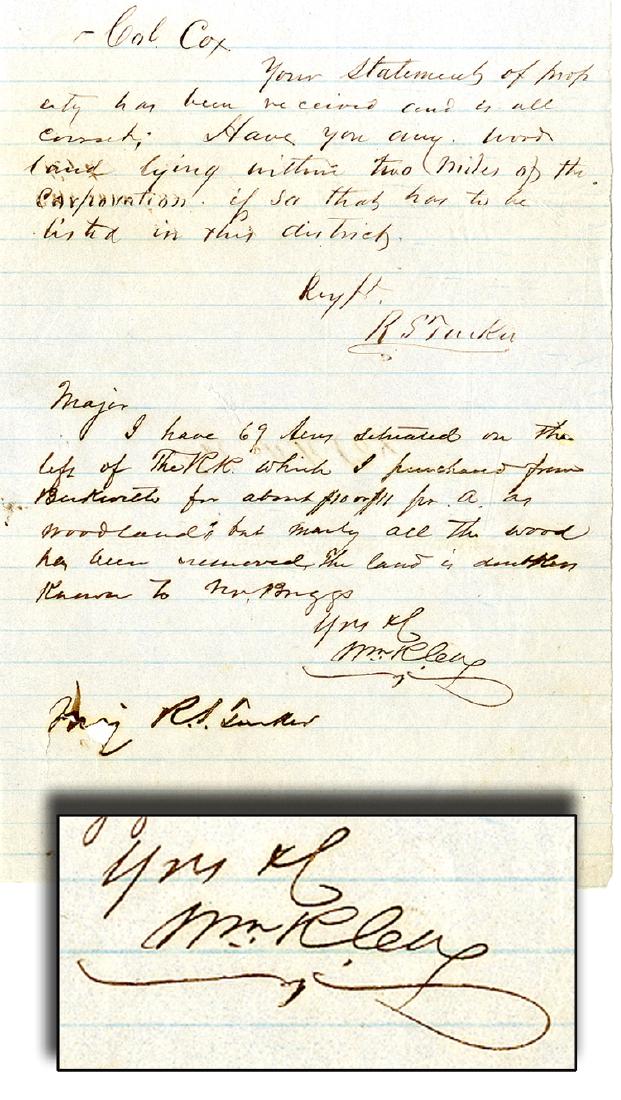 - Col. Cox
Your Statement of prop
erty has been received and is all
correct; Have you any wood
land lying within two miles of the
Corporation. if so that has to be
listed in this district.
Respt.
R. S. Tucker
Major
I have 69 Acres situated on the
left of The R.R. which I purchased from
Beckwith for about $10 or $11 pr. A. as
woodland; but nearly all the wood
has been removed. The land is doubtless
Known to Mr. Briggs
Yrs &c
Wm. R. Cox
Maj R. S. Tucker
Yrs &c
Wm. R. Cox